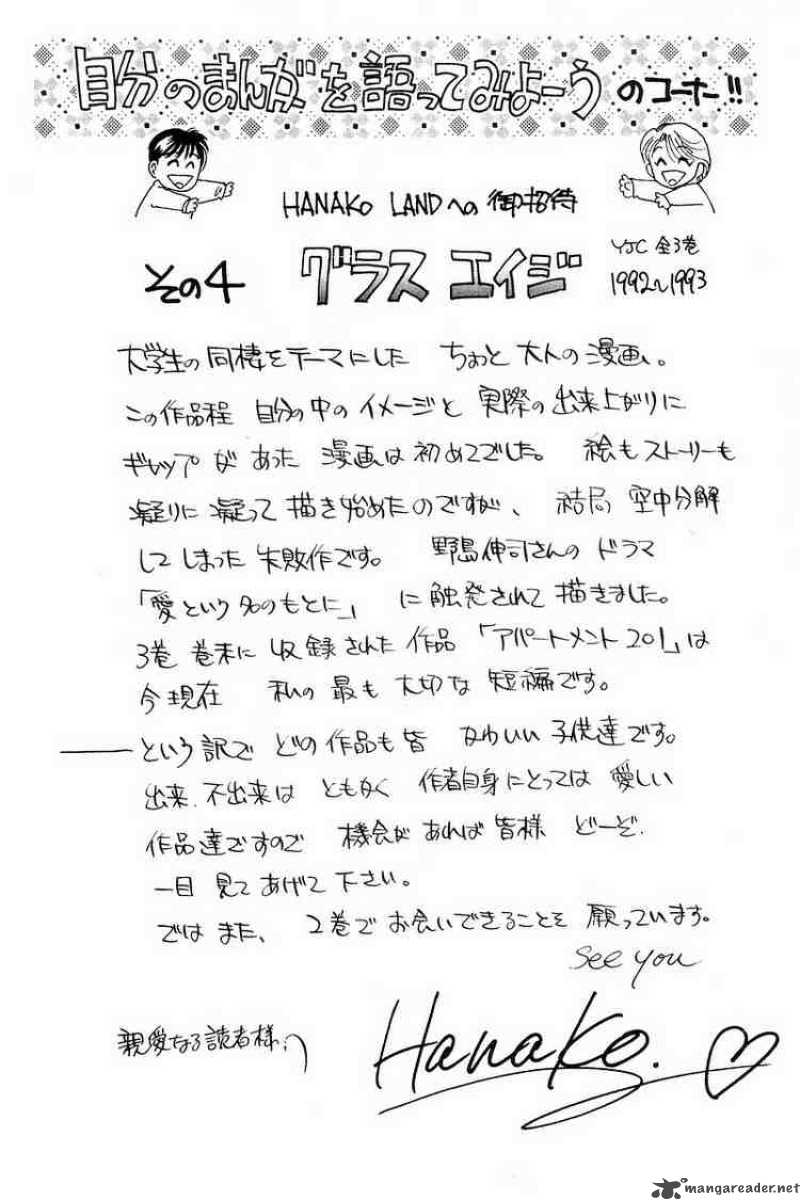 自分のまんがを語ってみよーう のコーナー!!
HANAKO LANDへの御招待
その4 グラス エイジ YJC 全3巻 1992~1993
大学生の同棲をテーマにした ちょっと大人の漫画。
この作品程 自分の中のイメージと 実際の出来上がりに
ギャップが あった 漫画は初めてでした。 絵もストーリーも
凝りに凝って描き始めたのですが、 結局 空中分解
してしまった失敗作です。 野島伸司さんの ドラマ
「愛という名のもとに」 に触発されて描きました。
3巻 巻末に 収録された作品「アパートメント 201」は
今現在 私の最も大切な短編です。
——という訳で どの作品も皆 かわいい子供達です。
出来、不出来は ともかく 作者自身にとっては 愛しい
作品達ですので 機会が あれば皆様 どーぞ、
一目 見てあげて下さい。
では また、 2巻で お会いできることを 願っています。
See you
親愛なる読者様へ
Hanako. ♡
mangareader.net